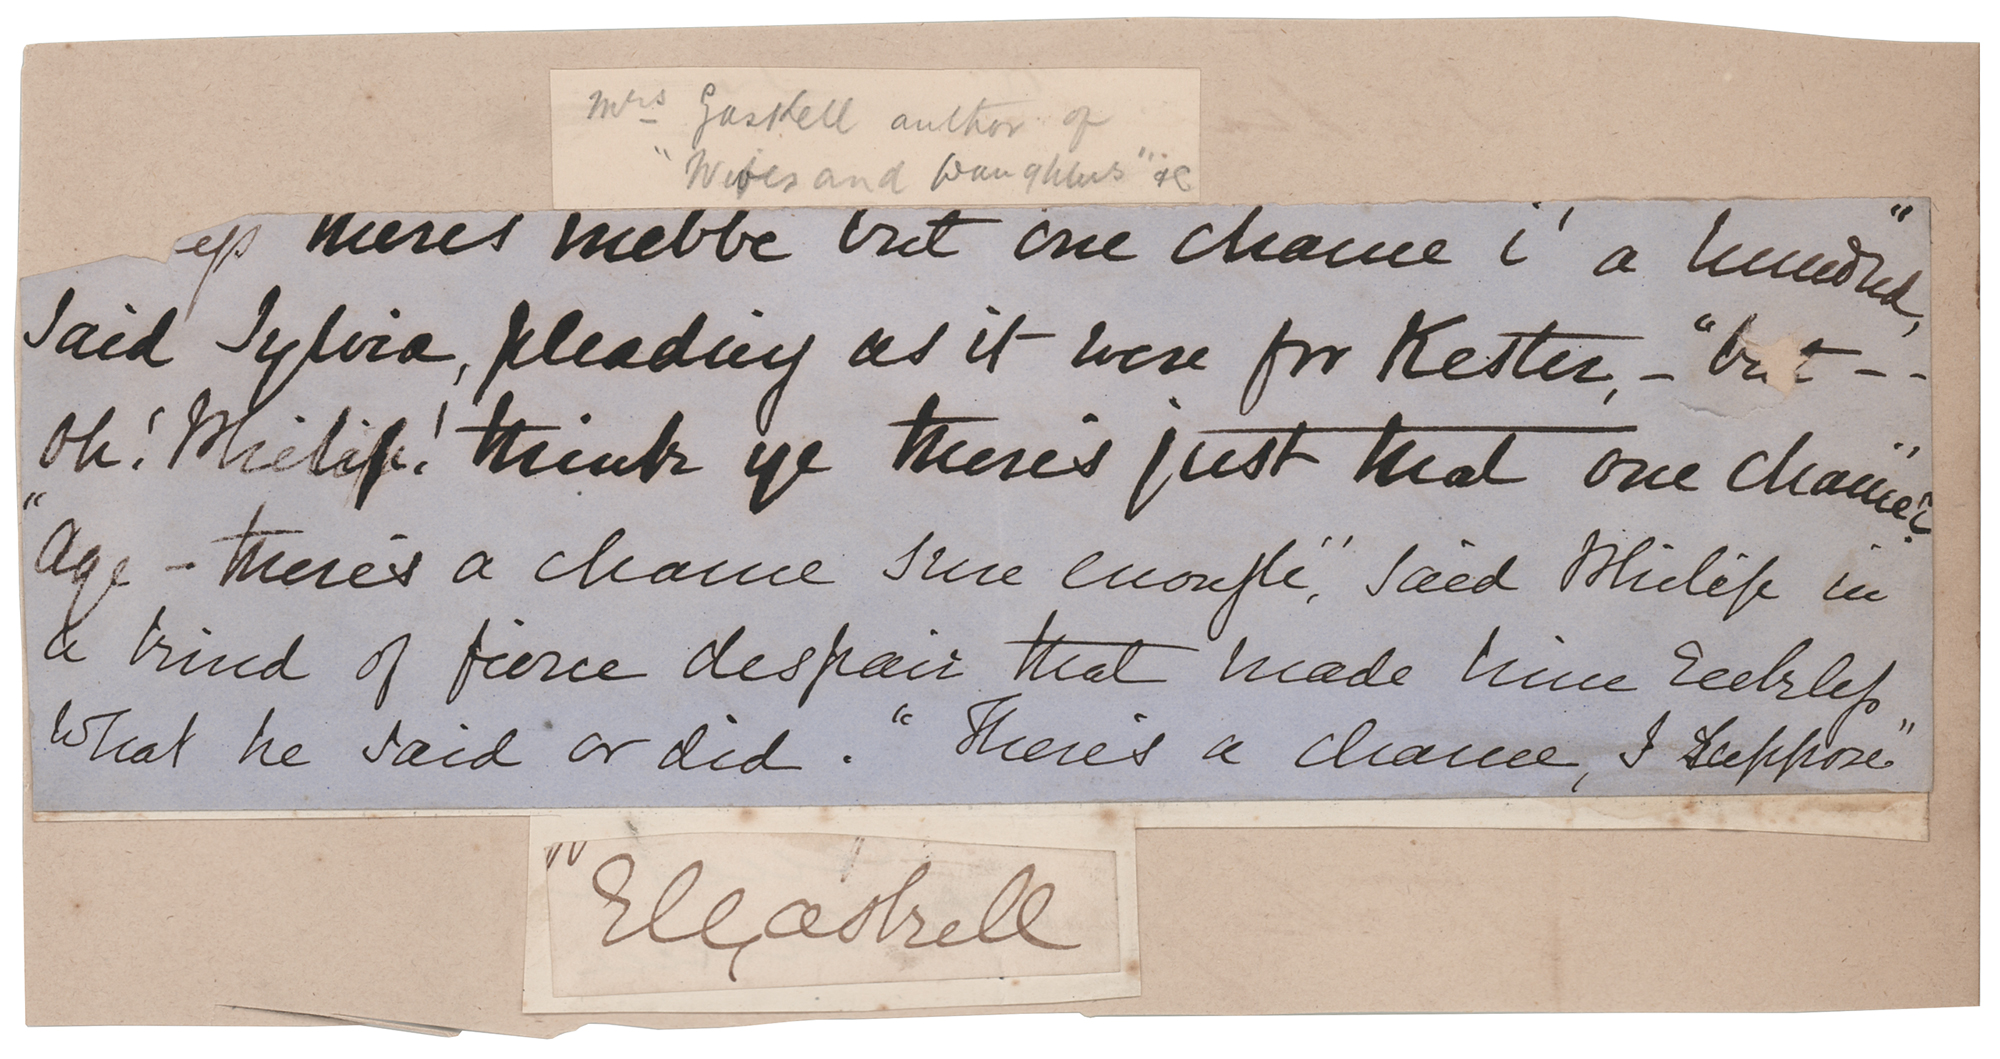 Mrs Gaskell author of
"Wives and Daughters" &c
there's mebbe but one chance i' a hundred,"
said Sylvia, pleading as it were for Kester, - "but - -
oh! Philip! think ye there's just that one chance?"
"Aye - there's a chance sure enough," said Philip in
a kind of fierce despair that made him reckless
what he said or did. "There's a chance, I suppose"
EC Gaskell